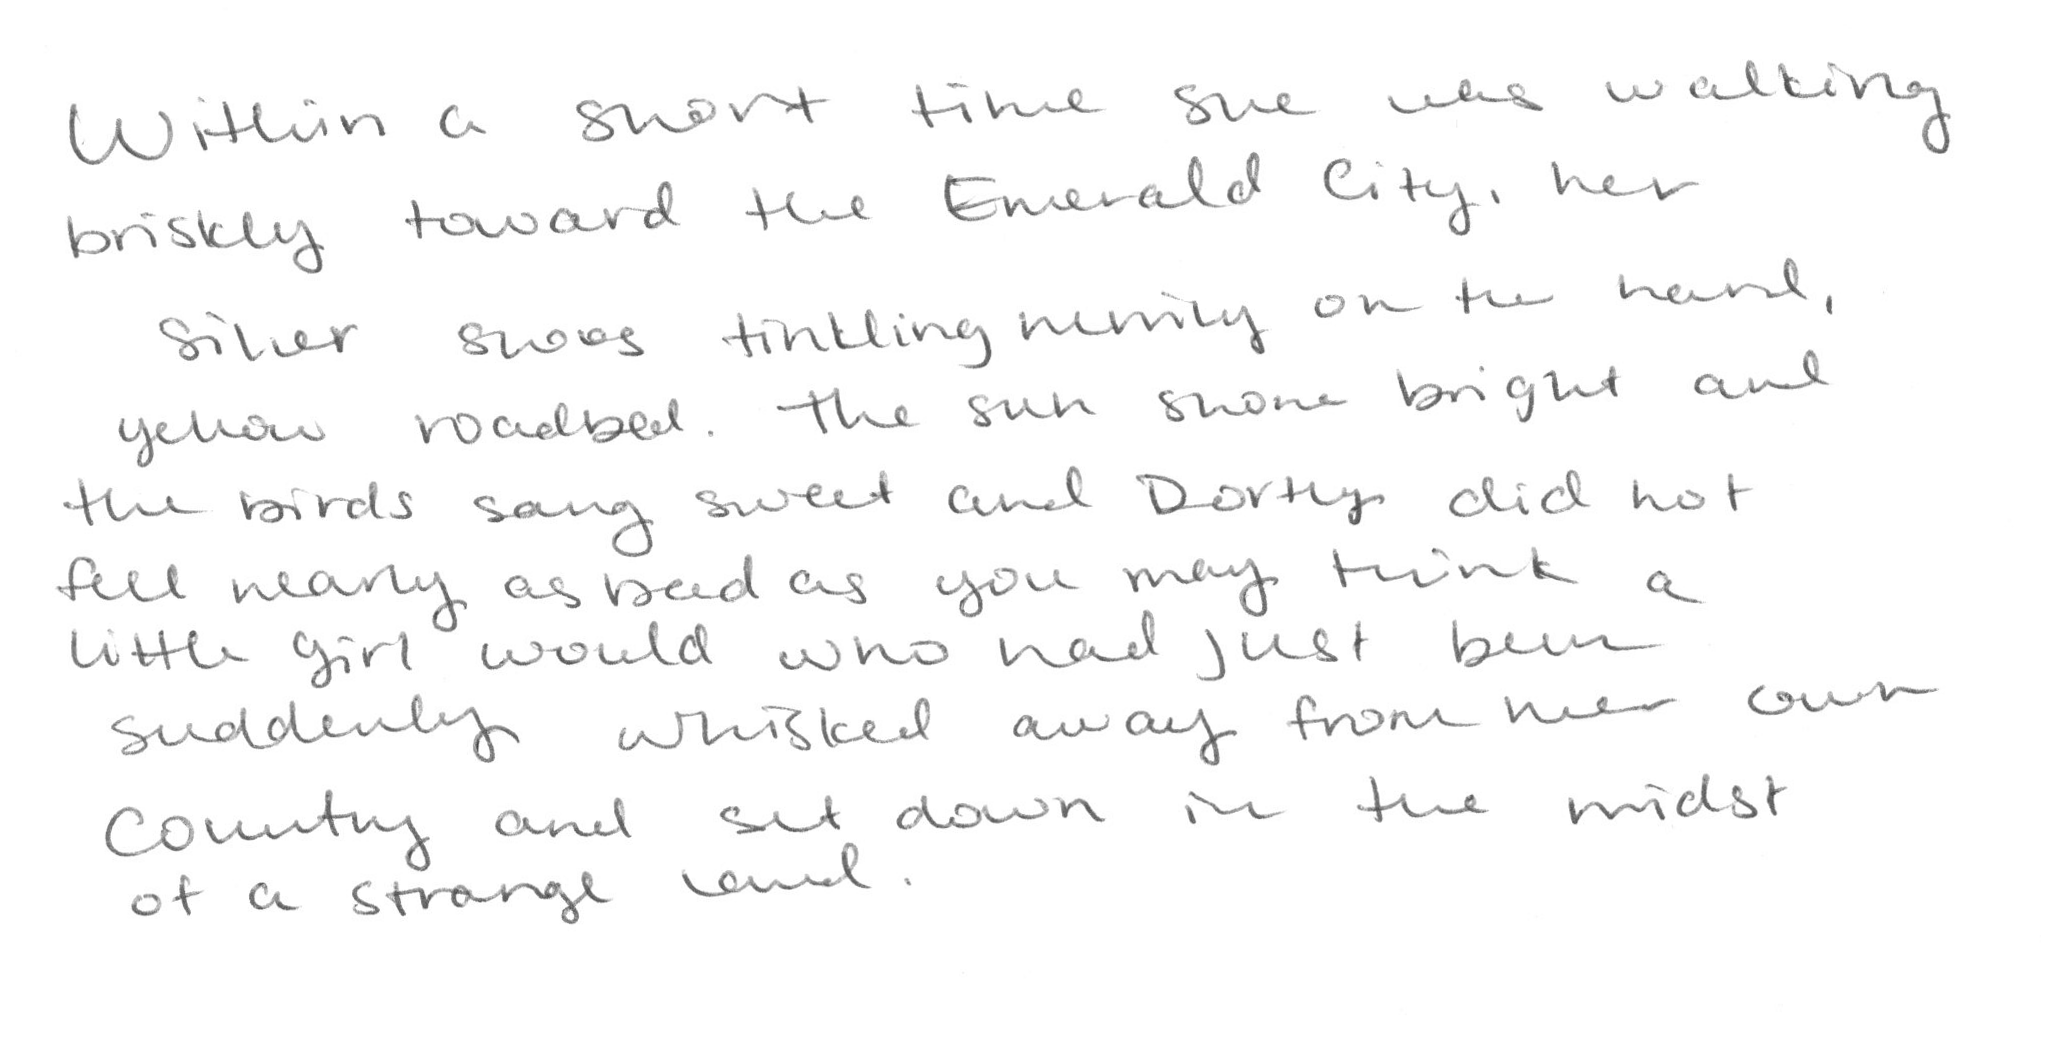 Within a short time she was walking
briskly toward the Emerald City, her
Silver shoes tinkling merrily on the hard,
yellow roadbed. The sun shone bright and
the birds sang sweet and Dorthy did not
feel nearly as bad as you may think a
little girl would who had just been
suddenly whisked away from her own
Country and set down in the midst
of a strange land.